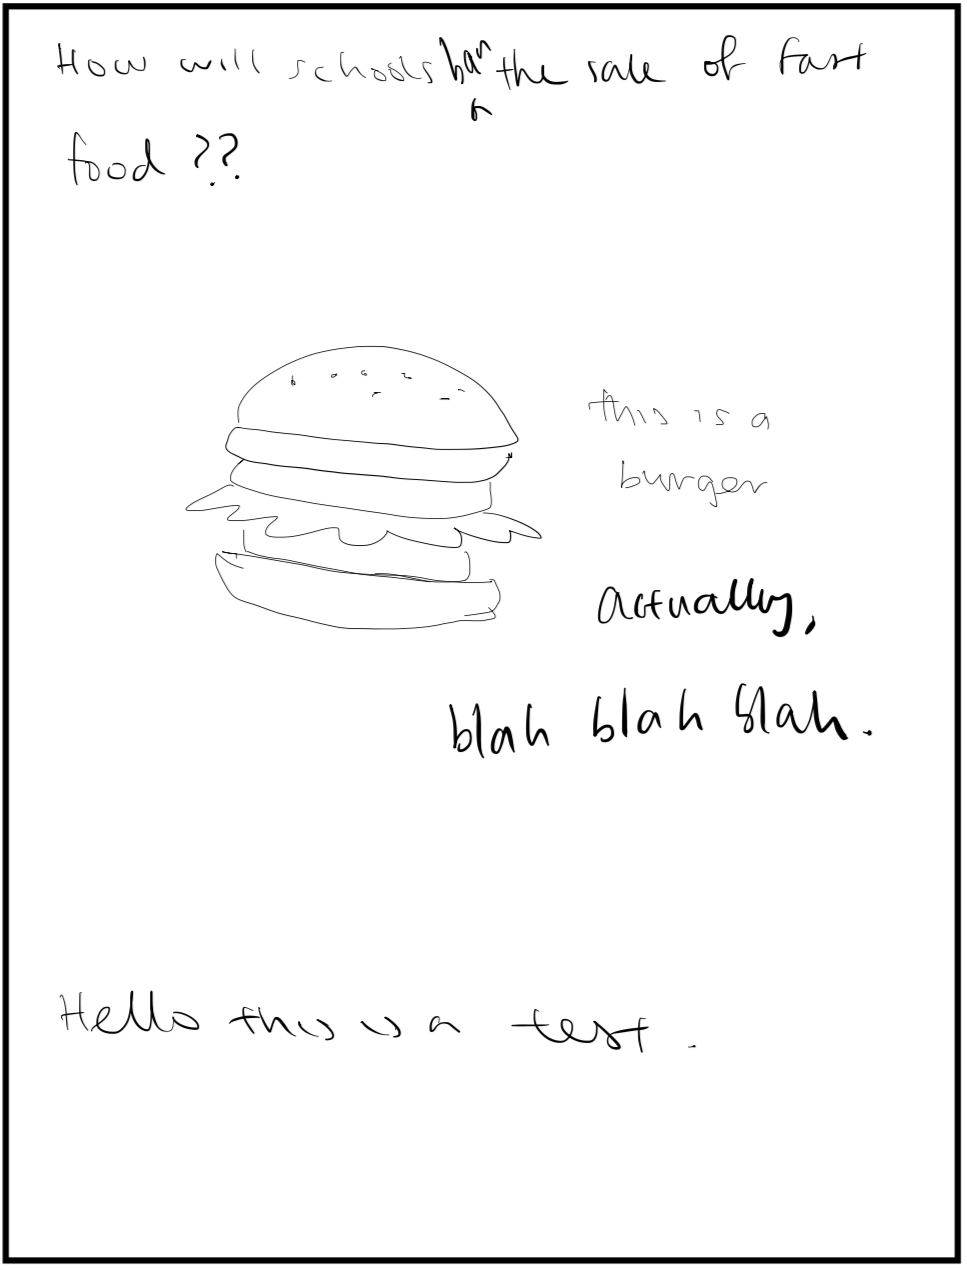 How will schools ban the sale of fast
food ??
this is a
burger
actually,
blah blah blah.
Hello this is a test.